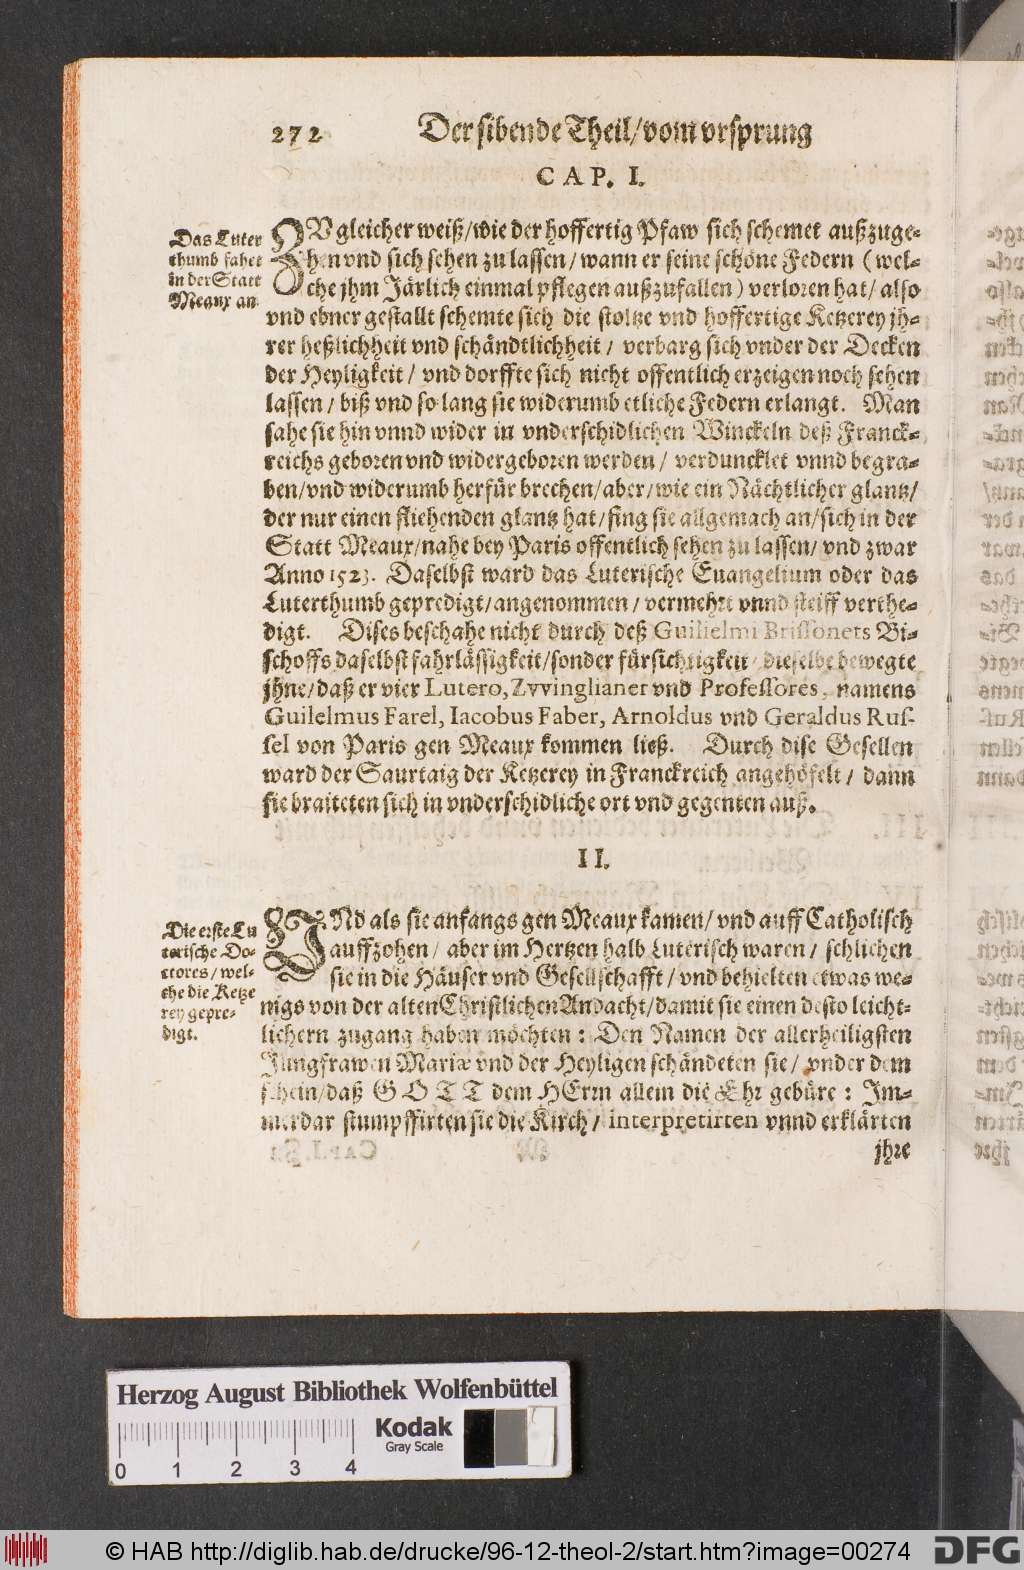 272 Der sibende Theil/vom vrsprung
CAP. I.
Das Luter
thumb fahet
in der Statt
Meaux an
ZV gleicher weiß/wie der hoffertig Pfaw sich schemet außzuge-
hen vnd sich sehen zu lassen/wann er seine schöne Federn (wel-
che jhm Järlich einmal pflegen außzufallen) verloren hat/also
vnd ebner gestallt schemte sich die stoltze vnd hoffertige Ketzerey jh-
rer heßlichheit vnd schändtlichheit/ verbarg sich vnder der Decken
der Heyligkeit/ vnd dorffte sich nicht offentlich erzeigen noch sehen
lassen/ biß vnd so lang sie widerumb etliche Federn erlangt. Man
sahe sie hin vnnd wider in vnderschidlichen Winckeln deß Franck-
reichs geboren vnd widergeboren werden/ verduncklet vnnd begra-
ben/vnd widerumb herfür brechen/aber/wie ein Nächtlicher glantz/
der nur einen fliehenden glantz hat/fing sie allgemach an/sich in der
Statt Meaux/nahe bey Paris offentlich sehen zu lassen/ vnd zwar
Anno 1523. Daselbst ward das Luterische Euangelium oder das
Luterthumb gepredigt/angenommen/ vermehrt vnnd steiff verthe-
digt. Dises beschahe nicht durch deß Guilielmi Brissonets Bi-
schoffs daselbst fahrlässigkeit/sonder fürsichtigkeit/ dieselbe bewegte
jhne/daß er vier Lutero, Zvvinglianer vnd Professores, namens
Guilelmus Farel, Iacobus Faber, Arnoldus vnd Geraldus Rus-
sel von Paris gen Meaux kommen ließ. Durch dise Gesellen
ward der Saurtaig der Ketzerey in Franckreich angehöfelt/ dann
sie braiteten sich in vnderschidliche ort vnd gegenten auß.
II.
Die erste Lu
terische Do-
ctores/ wel-
che die Ketze
rey gepre-
digt.
VNd als sie anfangs gen Meaux kamen/ vnd auff Catholisch
auffzohen/ aber im Hertzen halb Luterisch waren/ schlichen
sie in die Häuser vnd Gesellschafft/ vnd behielten etwas we-
nigs von der alten Christlichen Andacht/damit sie einen desto leicht-
lichern zugang haben möchten: Den Namen der allerheiligsten
Jungfrawen Mariæ vnd der Heyligen schändeten sie/ vnder dem
schein/daß GOTT dem HErrn allein die Ehr gebüre: Im-
merdar stumpffirten sie die Kirch/ interpretirten vnnd erklärten
jhre
Herzog August Bibliothek Wolfenbüttel
Kodak
Gray Scale
0 1 2 3 4
© HAB http://diglib.hab.de/drucke/96-12-theol-2/start.htm?image=00274
DFG